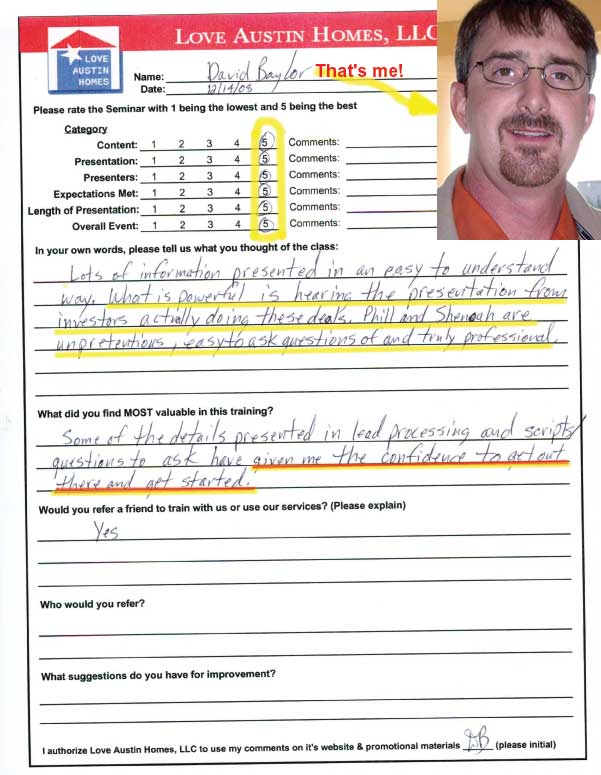 LOVE
AUSTIN
HOMES
LOVE AUSTIN HOMES, LLC
Name: David Baylor That's me!
Date: 12/14/08
Please rate the Seminar with 1 being the lowest and 5 being the best
Category
Content: 1 2 3 4 5 Comments:
Presentation: 1 2 3 4 5 Comments:
Presenters: 1 2 3 4 5 Comments:
Expectations Met: 1 2 3 4 5 Comments:
Length of Presentation: 1 2 3 4 5 Comments:
Overall Event: 1 2 3 4 5 Comments:
In your own words, please tell us what you thought of the class:
Lots of information presented in an easy to understand
way. What is powerful is hearing the presentation from
investors actually doing these deals. Phill and Shenoah are
unpretentious, easy to ask questions of and truly professional.
What did you find MOST valuable in this training?
Some of the details presented in lead processing and scripts/
questions to ask have given me the confidence to get out
there and get started.
Would you refer a friend to train with us or use our services? (Please explain)
Yes
Who would you refer?
What suggestions do you have for improvement?
I authorize Love Austin Homes, LLC to use my comments on it's website & promotional materials DB (please initial)